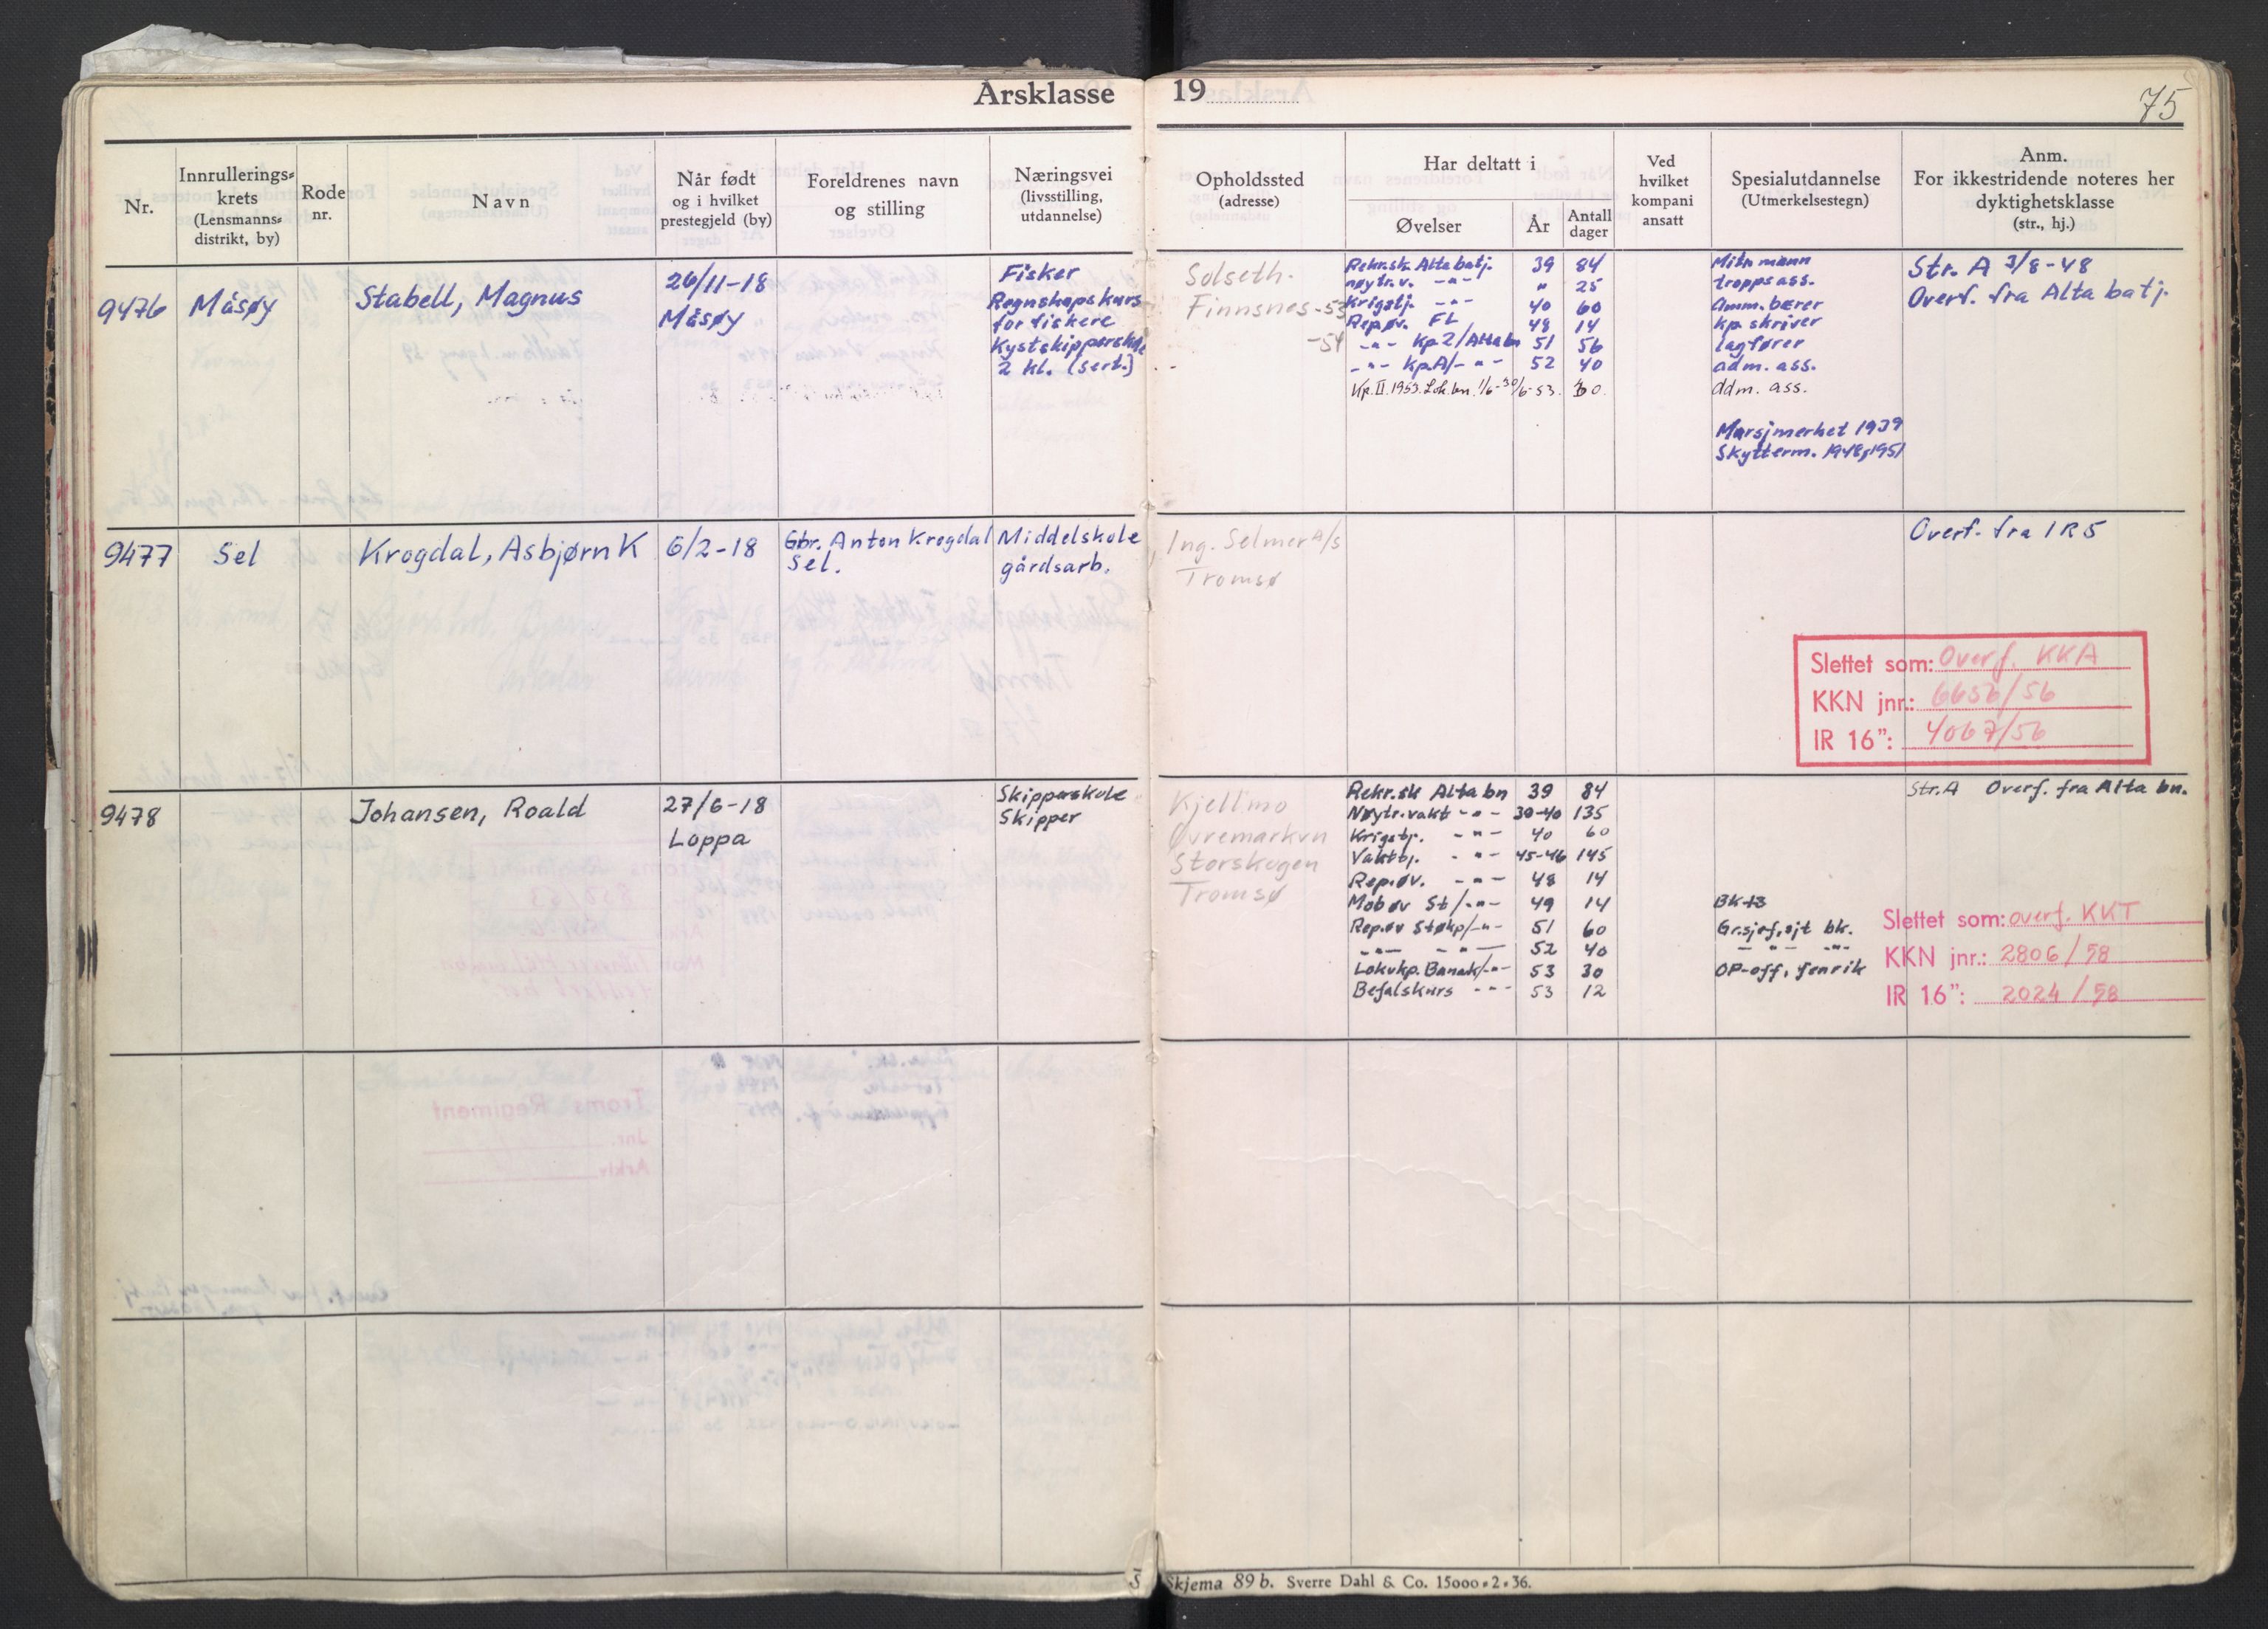 Årsklasse 19
75
Nr.
Innrullerings-
krets
(Lensmanns-
distrikt, by)
Rode
nr.
Navn
Når født
og i hvilket
prestegjeld (by)
Foreldrenes navn
og stilling
Næringsvei
(livsstilling,
utdannelse)
Opholdssted
(adresse)
Har deltatt i
Øvelser
År
Antall
dager
Ved
hvilket
kompani
ansatt
Spesialutdannelse
(Utmerkelsestegn)
Anm.
For ikkestridende noteres her
dyktighetsklasse
(str., hj.)
9476
Måsøy
Stabell, Magnus
26/11-18
Måsøy
Fisker
Regnskapskurs
for fiskere
Kystskipperskole
2 kl. (sert.)
Solseth.
Finnsnes -53
-54
Rekr.sk. Alta batj. 39 84
nøytr.v. -"- " 25
Krigstj. -"- 40 60
Rep.øv. FL 48 14
-"- Kp 2/Alta bn 51 56
-"- Kp.A/-"- 52 40
Kp. II. 1953. Lok.bn. 1/6-30/6-53. 30.
Mitr mann
tropps ass.
Amm. bærer
kp. skriver
lagfører
adm. ass.
adm. ass.
Marsjmerket 1939
Skytterm. 1948, 1951
Str. A 3/8-48
Overf. fra Alta batj.
9477
Sel
Krogdal, Asbjørn K
6/2-18
Gbr. Anton Krogdal
Sel.
Middelskole
gårdsarb.
Ing. Selmer A/S
Tromsø
Overf. fra IR 5
Slettet som: Overf. KKA
KKN jnr.: 6656/56
IR 16": 4067/56
9478
Johansen, Roald
27/6-18
Loppa
Skipperskole
Skipper
Kjellmo
Øvremarkvn
Storskogen
Tromsø
Rekr.sk Alta bn 39 84
Nøytr.vakt -"- 39-40 135
Krigstj. -"- 40 60
Vakttj. -"- 45-46 145
Rep.øv. -"- 48 14
Mob øv St/-"- 49 14
Rep.øv Støkp/-"- 51 60
-"- -"- 52 40
Lokvkp. Banak/-"- 53 30
Befalskurs -"- 53 12
BK +3
Gr.sjef, sjt bk.
-"- -"- -"-
OP-off, fenrik
Str. A Overf. fra Alta bn.
Slettet som: overf. KKT
KKN jnr.: 2806/58
IR 16": 2024/58
5
Skjema 89 b. Sverre Dahl & Co. 15000-2-36.